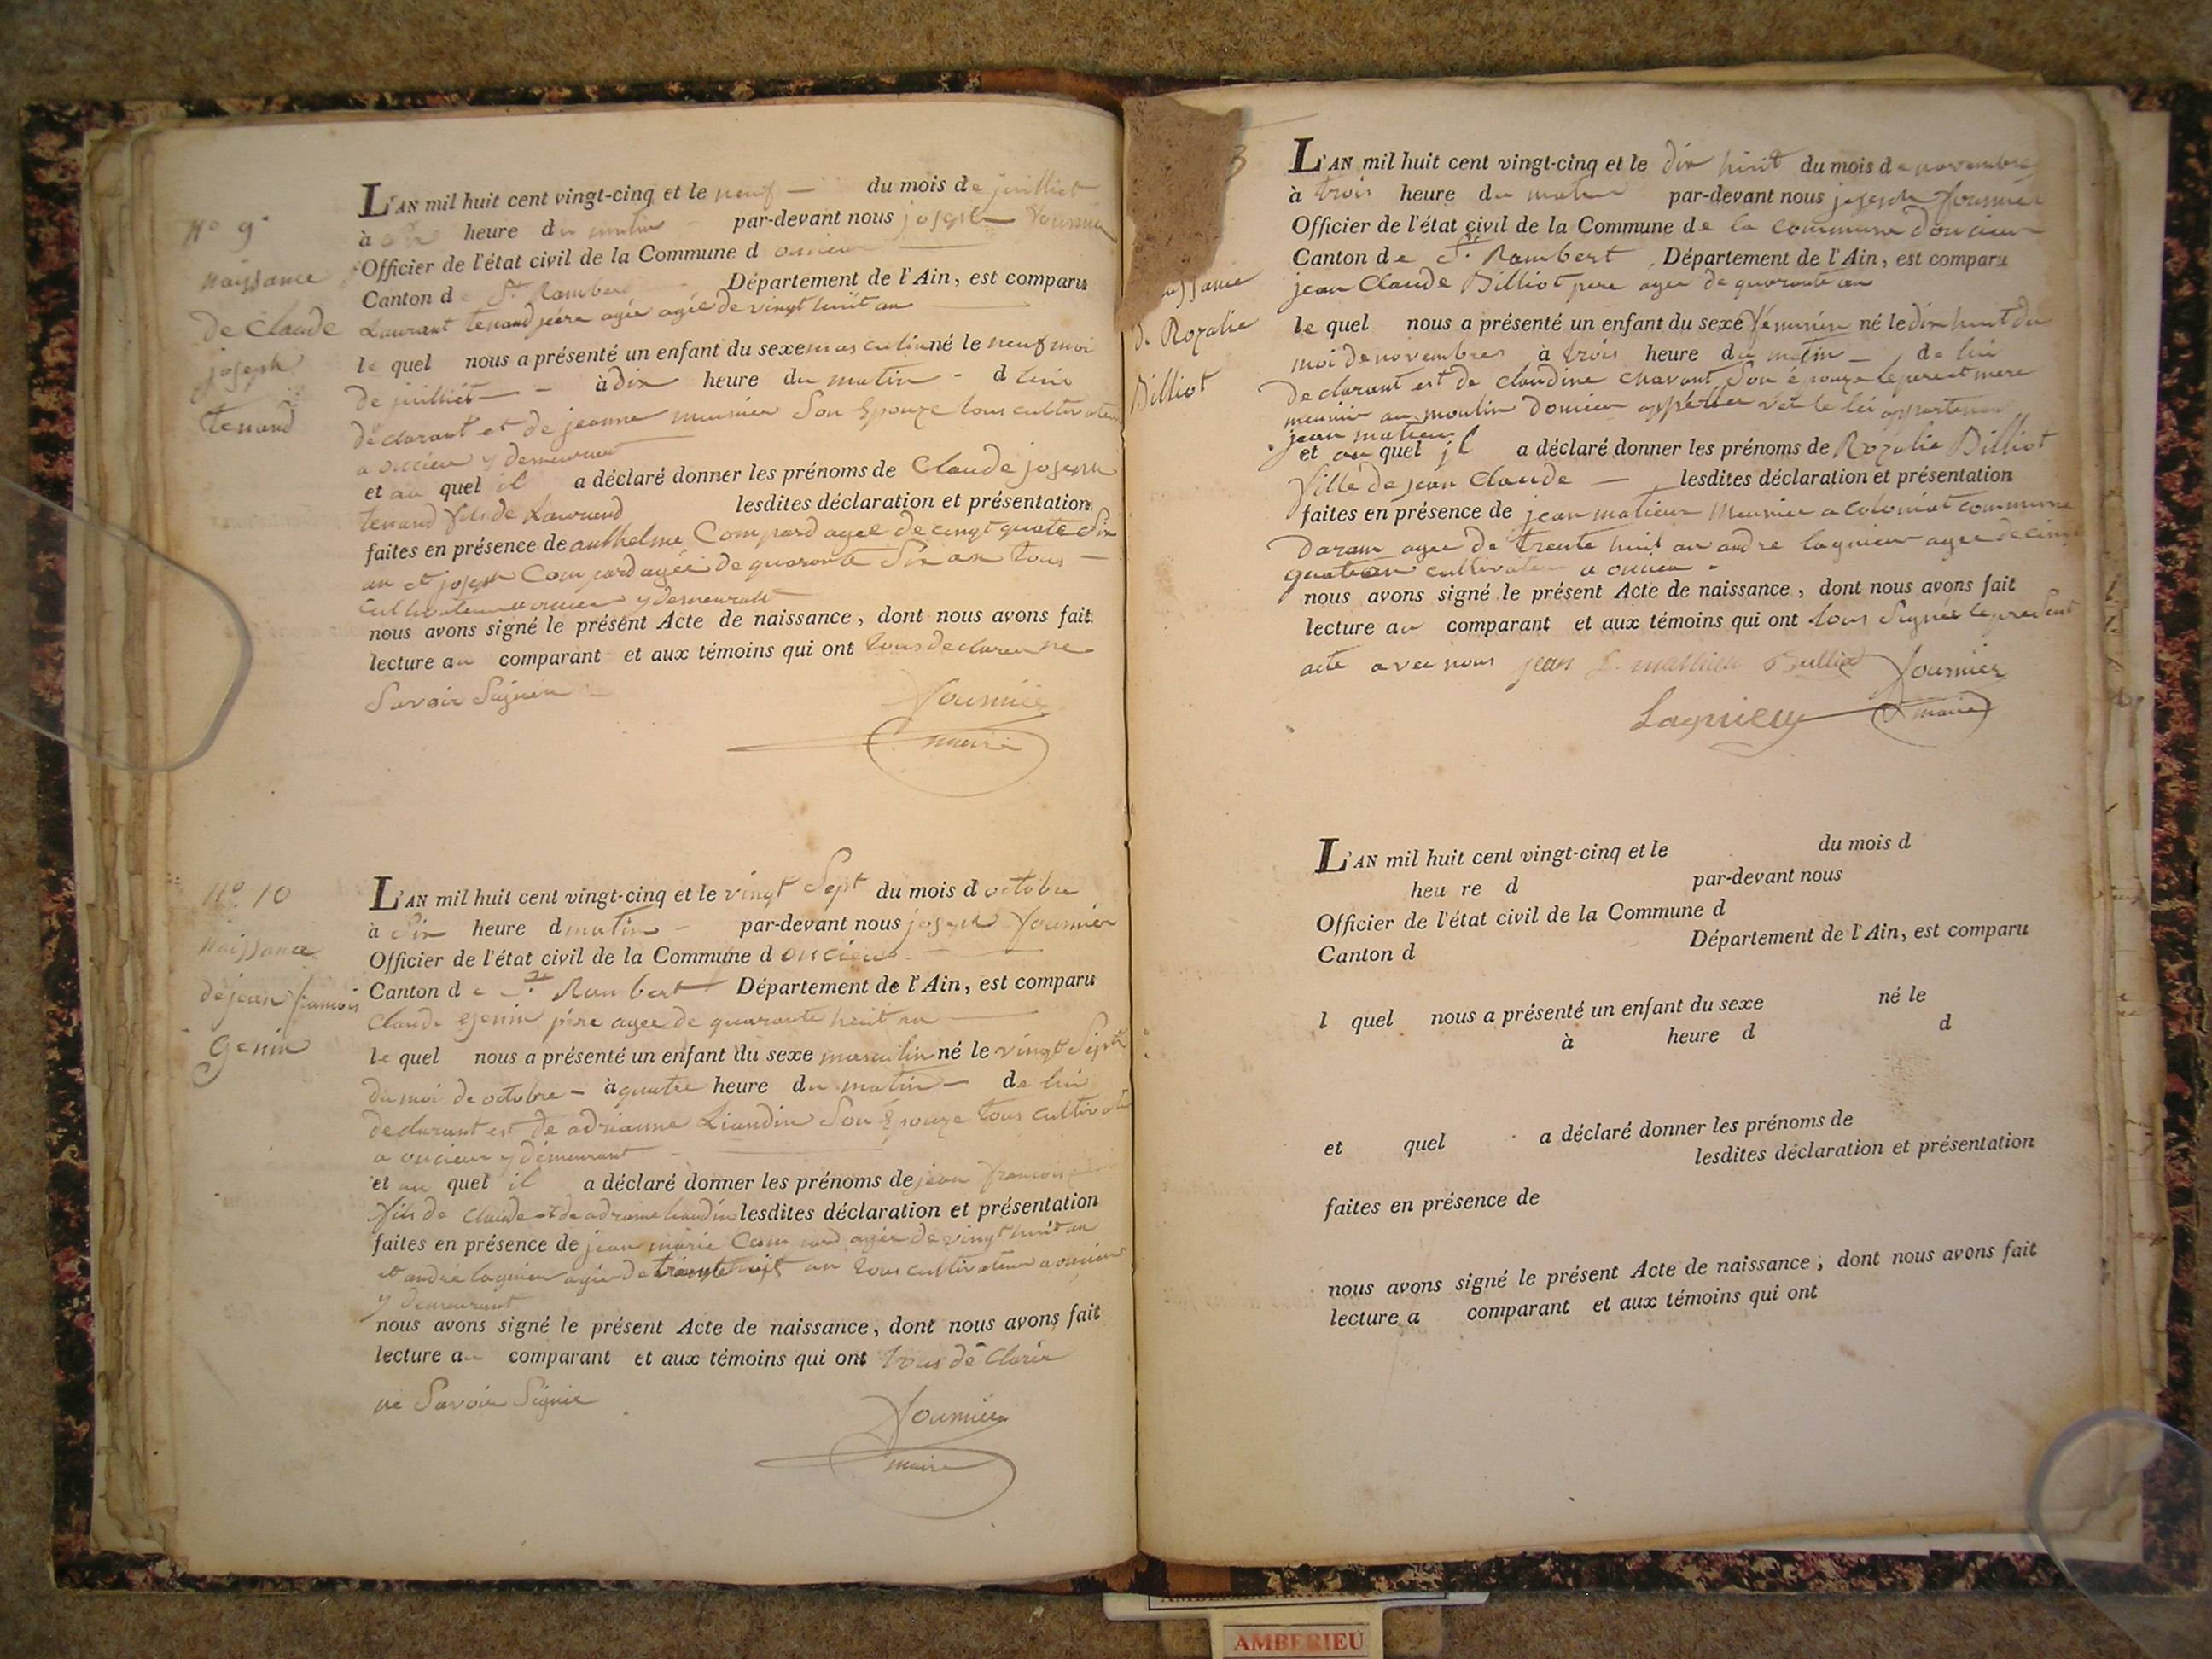 N° 9
naissance
de Claude
joseph
tenand
L'AN mil huit cent vingt-cinq et le neuf du mois de juilliet
à heure du matin par-devant nous joseph fournier
Officier de l'état civil de la Commune d oncieu
Canton de St Rambert Département de l'Ain, est comparu
Laurant tenand père agée agée de vingt huit an
le quel nous a présenté un enfant du sexe masculin né le neuf moi
de juilliet à dix heure du matin d
declarant et de jeanne meunier Son Epouze tous cultivateur
a oncieu y demeurant
et au quel il a déclaré donner les prénoms de Claude joseph
tenand fils de Laurand lesdites déclaration et présentation
faites en présence de anthelme Compard agee de cinq quate Six
an et joseph Compard agée de quarante Six an tous
cultivateur a oncieu y demeurant
nous avons signé le présent Acte de naissance, dont nous avons fait
lecture au comparant et aux témoins qui ont tous declaree ne
Savoir Signér
fournier
maire
N° 10
naissance
de jean francois
Genin
L'AN mil huit cent vingt-cinq et le vingt Sept du mois d octobre
à Six heure d matin par-devant nous joseph fournier
Officier de l'état civil de la Commune d oncieu
Canton de St Rambert Département de l'Ain, est comparu
Claude genin père agee de quaranté heuit an
le quel nous a présenté un enfant du sexe masculin né le vingt Sept
du moi de octobre à quatre heure du matin de lui
declarant est de adrianne Liandin Son Epouze tous cultivateur
a oncieu y demeurant
et au quel il a déclaré donner les prénoms de jean francois
fils de Claude et de adrianne liandin lesdites déclaration et présentation
faites en présence de jean marie Compard agée de vingt huit an
et andré lagnieu agée de trente huit an tous cultivateur a oncieu
y demeurant
nous avons signé le présent Acte de naissance, dont nous avons fait
lecture au comparant et aux témoins qui ont tous déClarér
ne Savoir Signér
fournier
maire
de Rozalie
Billiot
L'AN mil huit cent vingt-cinq et le dix huit du mois de novembre
à trois heure du matin par-devant nous joseph fournier
Officier de l'état civil de la Commune de la commune doncieu
Canton de St Rambert Département de l'Ain, est comparu
jean Claude Billiot pere agee de quarante an
le quel nous a présenté un enfant du sexe féminin né le dix huit du
moi de novembres à trois heure du matin de lui
declarant est de claudine chavant Son épouze le pere et mere
meunier au moulin doncieu appartena
jean matieu
et au quel il a déclaré donner les prénoms de Rozalie Billiot
fille de jean Claude lesdites déclaration et présentation
faites en présence de jean matieu meunier a coloniat commune
Daram agee de trente huit an andre lagnieu agee de cinq
quate an cultivateur a oncieu
nous avons signé le présent Acte de naissance, dont nous avons fait
lecture au comparant et aux témoins qui ont tous Signée le present
acte avec nous jean mathieu Bulliod fournier
Lagnieu maire
L'AN mil huit cent vingt-cinq et le du mois d
heu re d par-devant nous
Officier de l'état civil de la Commune d
Canton d Département de l'Ain, est comparu
l quel nous a présenté un enfant du sexe né le
à heure d d
et quel a déclaré donner les prénoms de
lesdites déclaration et présentation
faites en présence de
nous avons signé le présent Acte de naissance; dont nous avons fait
lecture a comparant et aux témoins qui ont
AMBERIEU